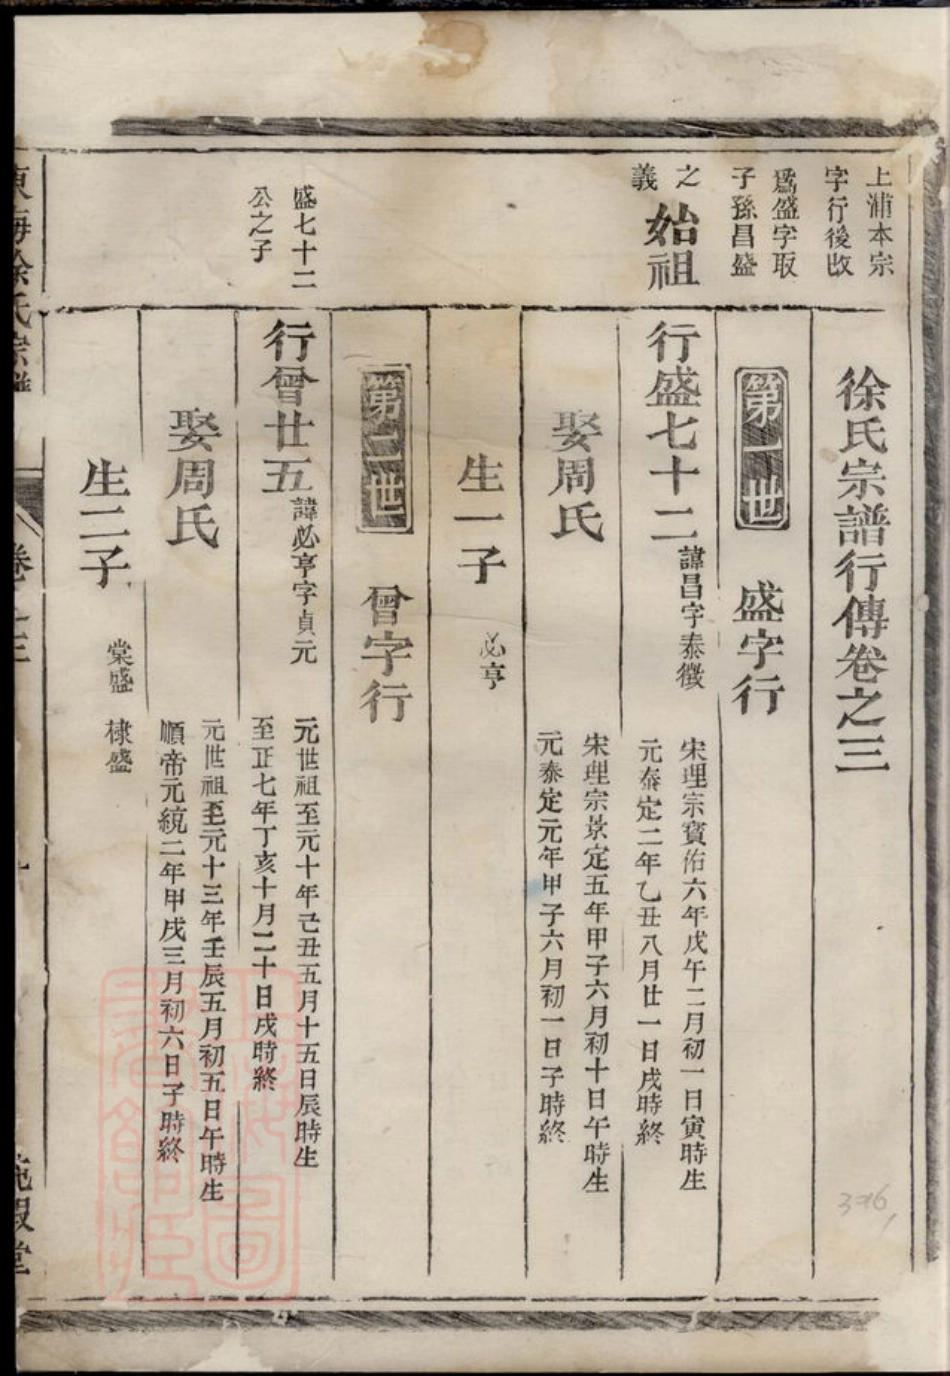 徐氏宗譜行傳卷之三
上浦本宗
字行後改
爲盛字取
子孫昌盛
之
義
始祖
第一世
盛字行
行盛七十二
諱昌字泰徵
宋理宗寶佑六年戊午二月初一日寅時生
元泰定二年乙丑八月廿一日戌時終
娶周氏
宋理宗景定五年甲子六月初十日午時生
元泰定元年甲子六月初一日子時終
生一子
必亨
第二世
曾字行
盛七十二
公之子
行曾廿五
諱必亨字貞元
元世祖至元十年己丑五月十五日辰時生
至正七年丁亥十月二十日戌時終
娶周氏
元世祖至元十三年壬辰五月初五日午時生
順帝元統二年甲戌三月初六日子時終
生二子
棠盛
棣盛
東海徐氏宗譜
卷之三